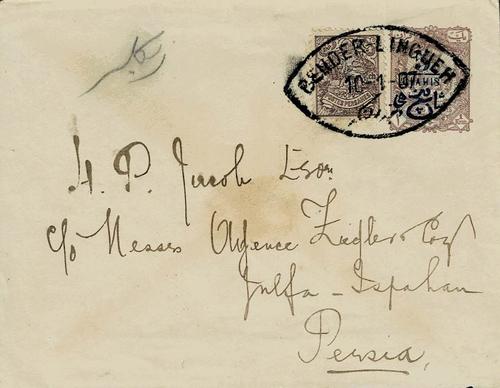 BENDER-LINGUEH
10-1-07
H. P. Jacob Esqr
c/o Messrs Agence Ziegler & Coy
Julfa - Ispahan
Persia,